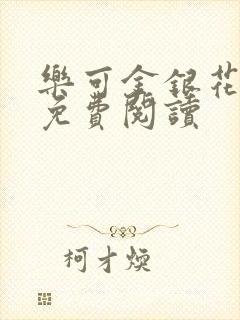 樂可金銀花
免費閱讀
柯才煥